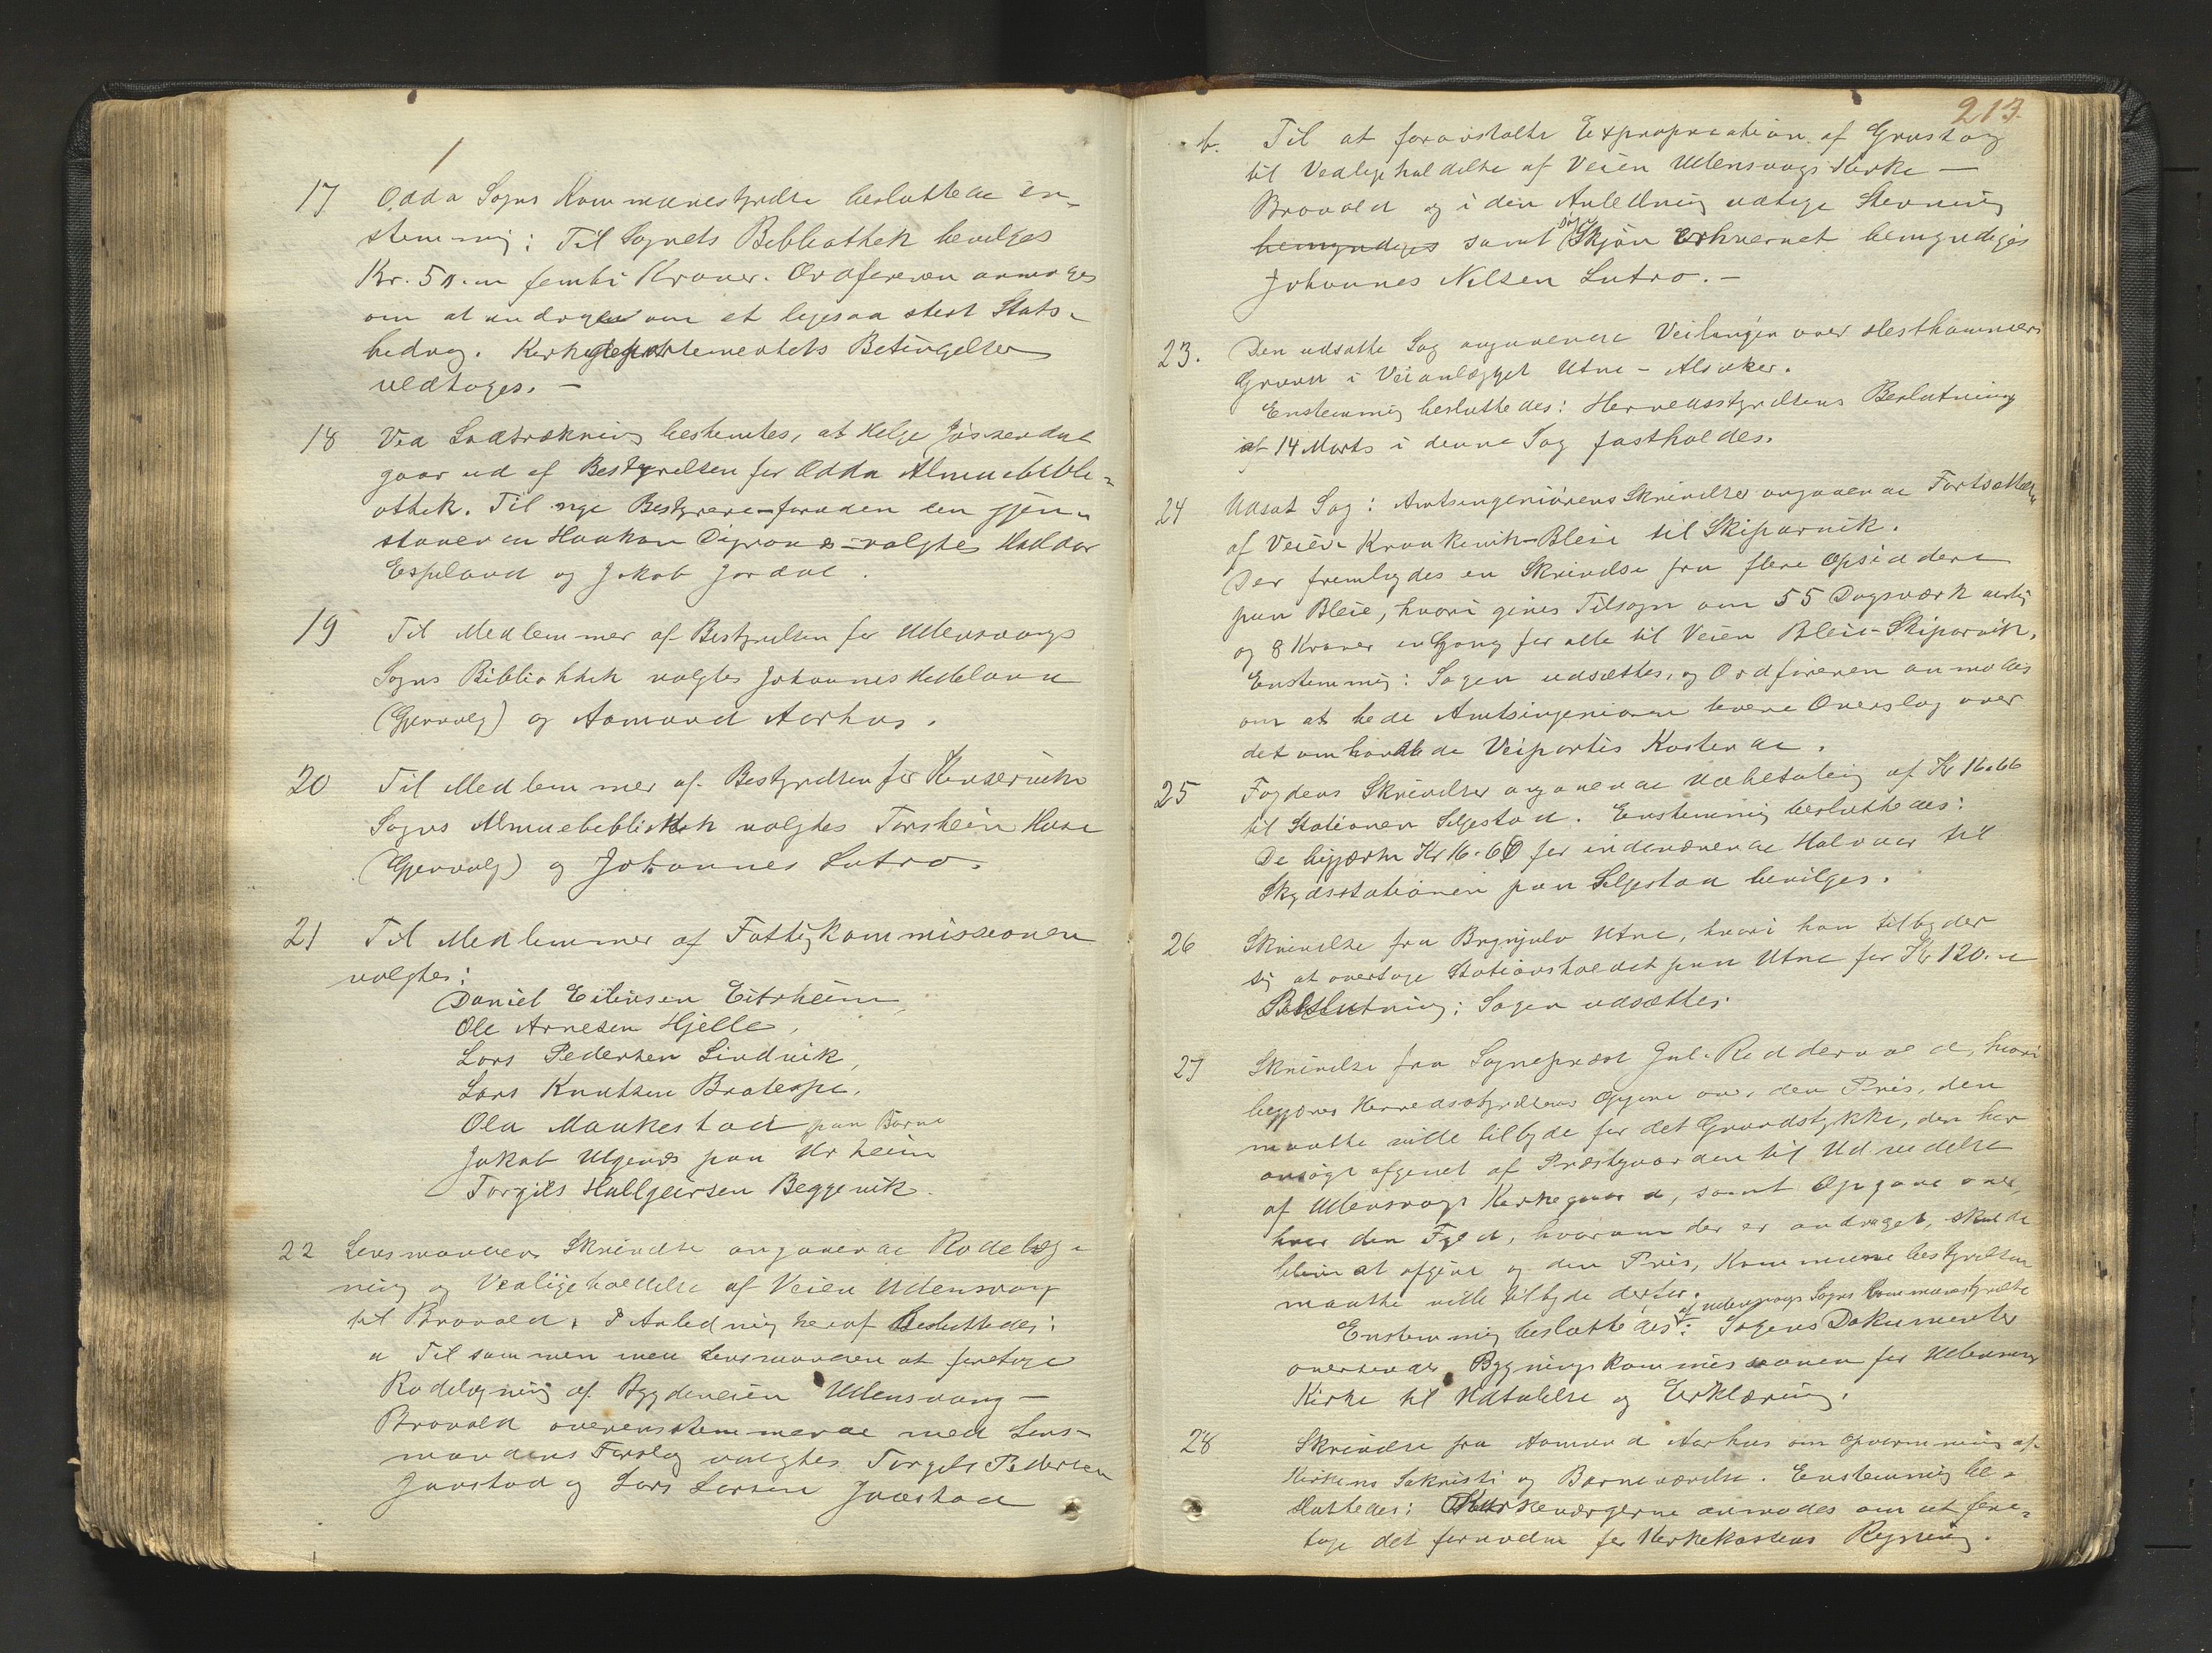 17 Odda Sogns Kommunestyrelse besluttede en-
stemmig: Til Sognets Bibliothek bevilges
Kr. 50.00 femti Kroner. Ordføreren anmodes
om at andrage om et ligesaa stort Stats-
bidrag. Kirkedepartementets Betingelser
vedtoges. –
18 Ved Lodtrækning bestemtes, at Helge Jøssendal
gaar ud af Bestyrelsen for Odda Almuebibli-
othek. Til nye Bestyrere – foruden den gjen-
staaende Haakon Digranes – valgtes Haldor
Espeland og Jakob Jordal.
19 Til Medlemmer af Bestyrelsen for Ullensvangs
Sogns Bibliothek valgtes Johannes Helleland
(Gjenvalg) og Aamund Aarhus.
20 Til Medlemmer af Bestyrelsen for Kinserviks
Sogns Almuebibliothek valgtes Torstein Huse
(Gjenvalg) og Johannes Lutro.
21 Til Medlemmer af Fattigkommissionen
valgtes:
Daniel Eilivsen Eitrheim,
Ole Arnesen Hjelle,
Lars Pedersen Lindvik,
Lars Knutsen Bratespe,
Ola Maakestad paa Børve
Jakob Utgenes paa Urheim
Torgils Hallgeirsen Beggevik.
22 Lensmandens Skrivelse angaaende Rodelæg-
ning og Vedligeholdelse af Veien Ullensvang
til Bravold. I Anledning heraf besluttedes:
a Til sammen med Lensmanden at foretage
Rodelægning af Bygdeveien Ullensvang –
Bravold overensstemmende med Lens-
mandens Forslag valgtes Torgils Pedersen
Jaastad og Lars Larsen Jaastad
213.
b. Til at foranstalte Expropriation af Grustag
til Vedligeholdelse af Veien Ullensvangs Kirke –
Bravold og i den Anledning udtage Stevning
bemyndiges samt Skjøn erhvervet bemyndiges
Johannes Nilsen Lutro. –
23. Den udsatte Sag angaaende Veilinjen over Hesthammer
Graven i Veianlægget Utne – Alsaker.
Enstemmig besluttedes: Herredsstyrelsens Beslutning
af 14 Marts i denne Sag fastholdes.
24 Udsat Sag: Amtsingeniørens Skrivelse angaaende Fortsættelse
af Veien Kraakevik–Bleie til Skiparvik.
Der fremlagdes en Skrivelse fra flere Opsiddere
paa Bleie, hvori gives Tilsagn om 55 Dagsværk aarlig
og 8 Kroner en Gang for alle til Veien Bleie–Skiparvik.
Enstemmig: Sagen udsættes, og Ordføreren anmodes
om at bede Amtsingeniøren levere Overslag over
det omhandlede Veipartis Kostende.
25 Fogdens Skrivelse angaaende Udbetaling af Kr 16.66
til Stationen Seljestad. Enstemmig besluttedes:
De begjærte Kr 16.60 for indeværende Halvaar til
Skydsstationen paa Seljestad bevilges.
26 Skrivelse fra Brynjulv Utne, hvori han tilbyder
sig at overtage Stationsholdet paa Utne for Kr 120.00
Beslutning: Sagen udsættes.
27 Skrivelse fra Sogneprest Jul. Riddervold, hvori
begjæres Herredsstyrelsens Opgave over den Pris, den
maatte ville tilbyde for det Grundstykke, den har
ansøgt afgivet af Præstgaarden til Udvidelse
af Ullensvangs Kirkegaard, samt Opgave over,
hvor den Fyld, hvorom der er andraget, skulde
blive at afgive og den Pris, Kommunebestyrelsen
maatte ville tilbyde derfor.
Enstemmig besluttedes af Ullensvangs Sogns Kommunestyrelse: Sagens Dokumenter
oversendes Bygningskommissionen for Ullensvang
Kirke til Udtalelse og Erklæring.
28 Skrivelse fra Aamund Aarhus om Opvarmning af
Kirkens Sakristi og Barneværelse. Enstemmig be-
sluttedes: Kirkeværgerne anmodes om at fore-
tage det fornødne for Kirkekassens Regning.